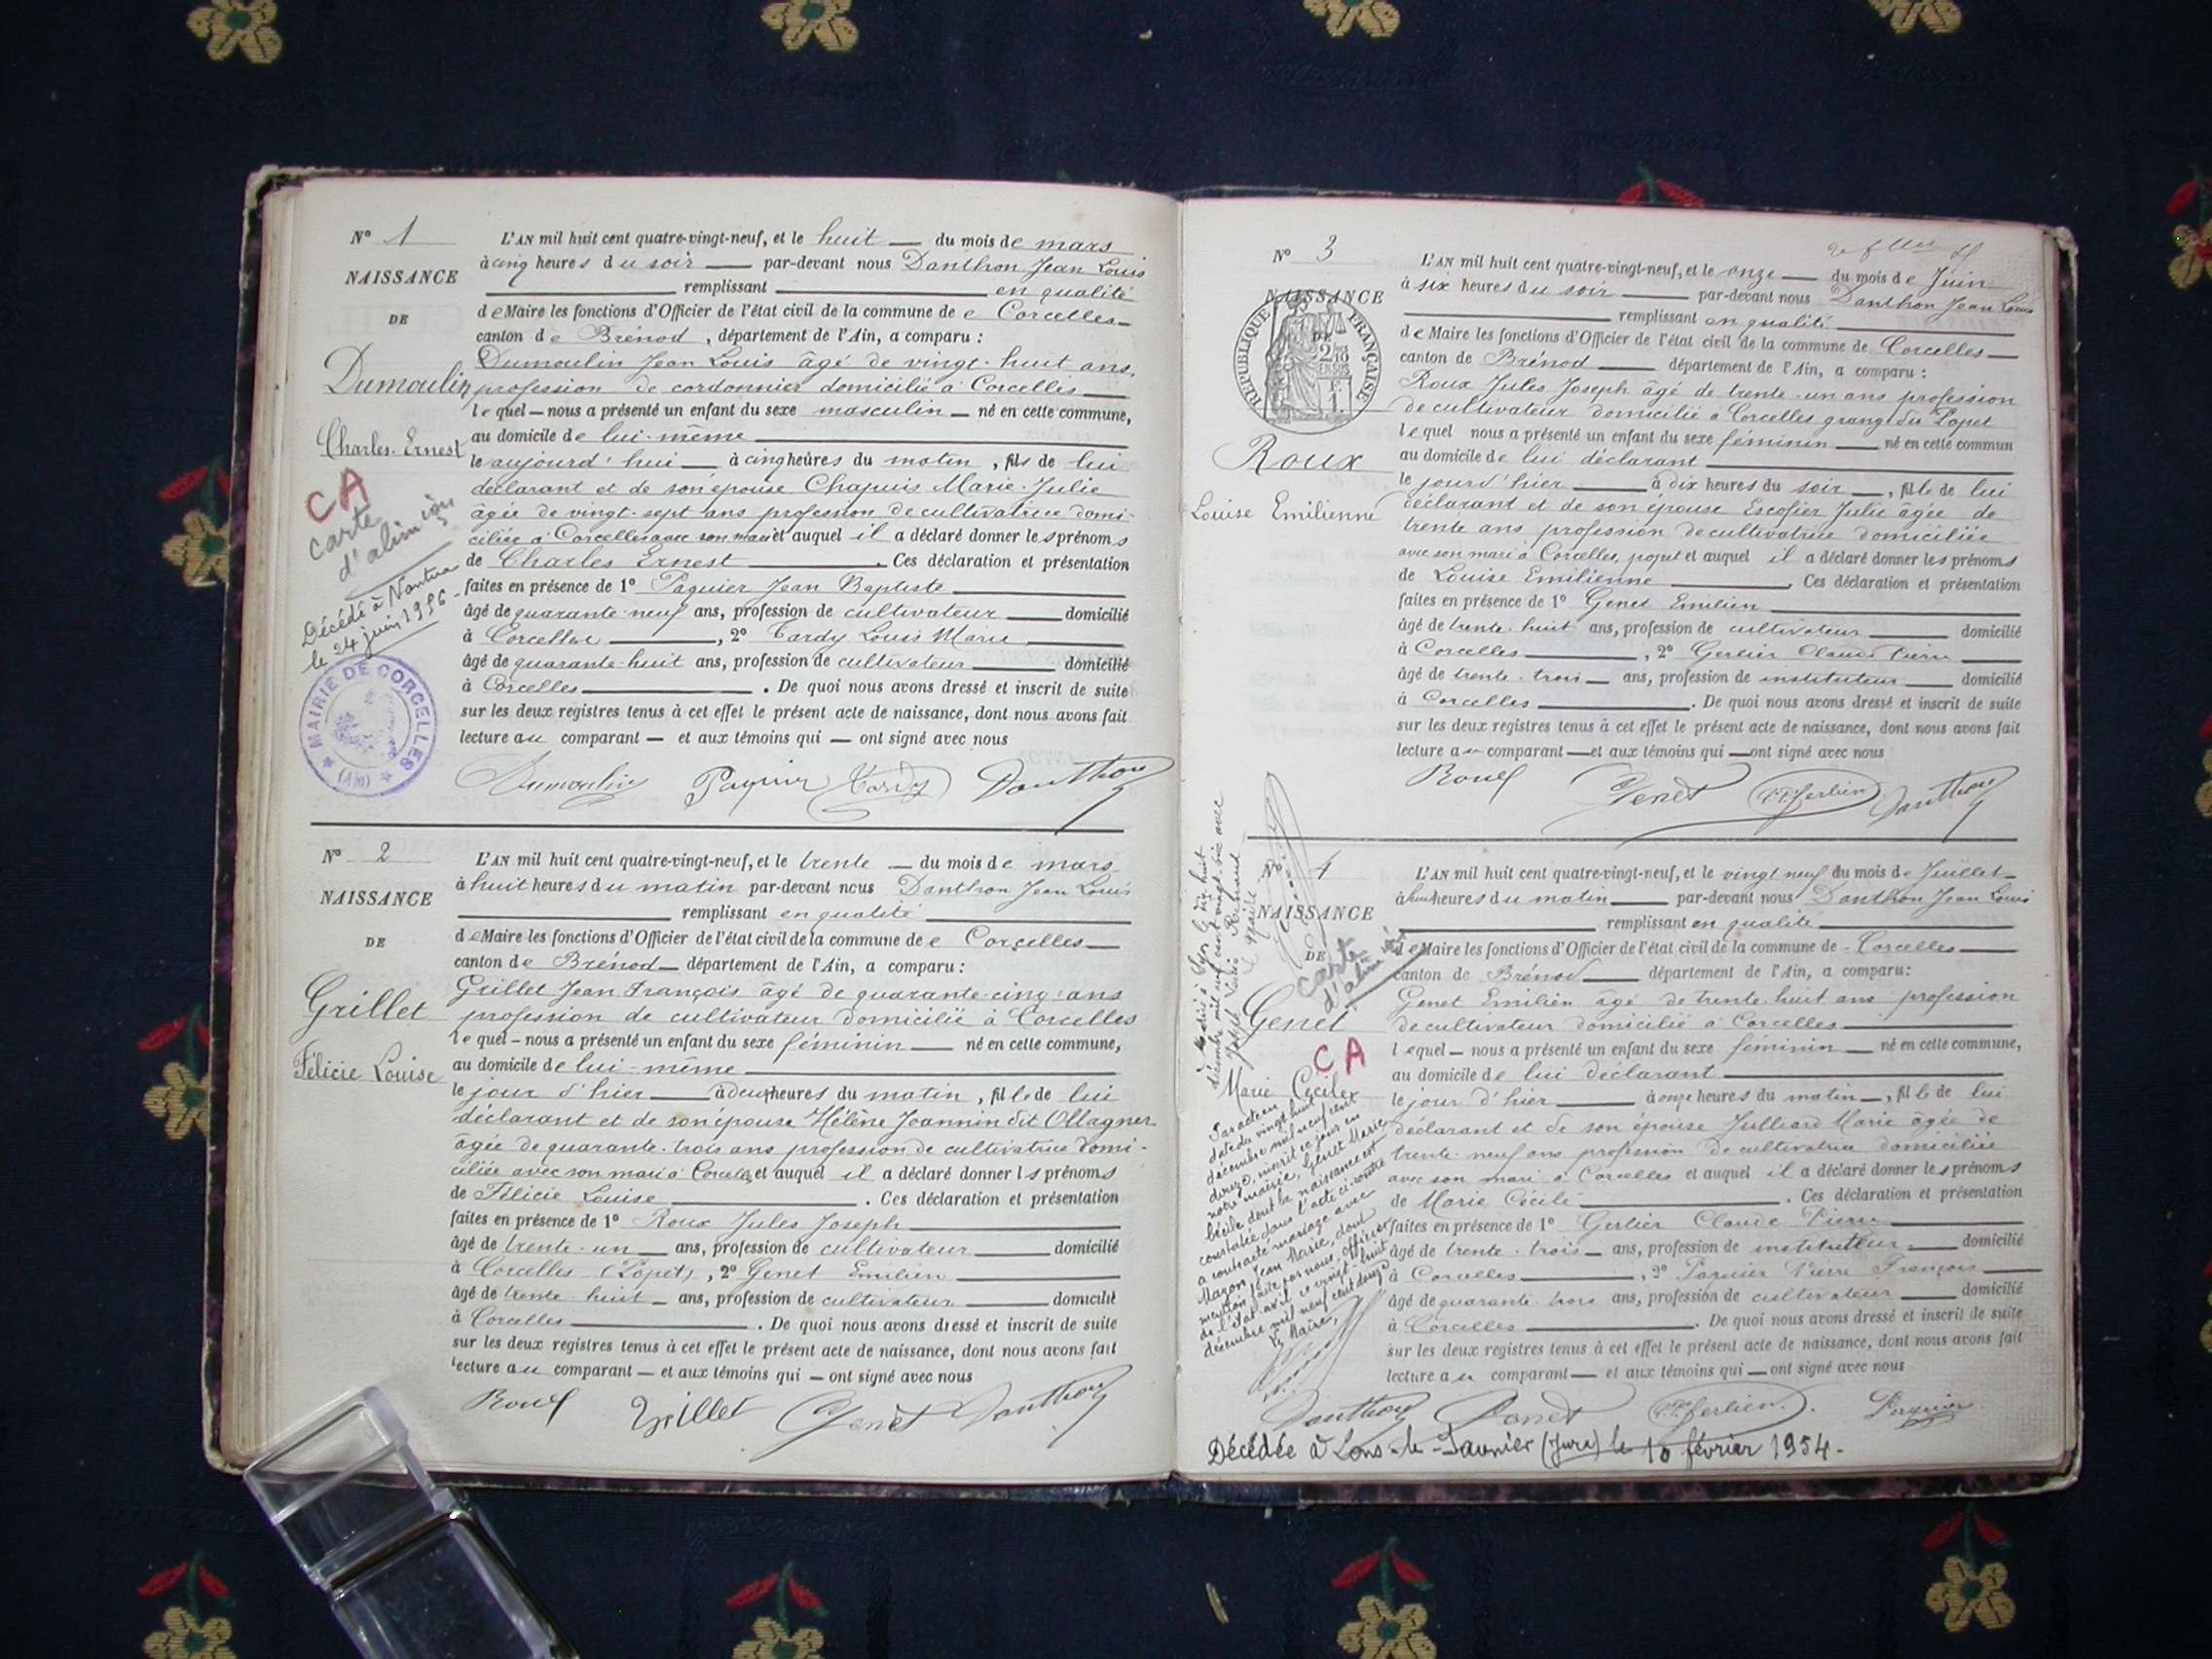 N° 1
NAISSANCE
DE
Dumoulin
Charles Ernest
CA
carte
d'alim ion
Décédé à Nantua
le 24 juin 1956 -
MAIRIE DE CORCELLES
(Ain)
L'AN mil huit cent quatre-vingt-neuf, et le huit du mois de mars
à cinq heures du soir par-devant nous Danthon Jean Louis
remplissant en qualité
de Maire les fonctions d'Officier de l'état civil de la commune de e Corcelles
canton de Brénod, département de l'Ain, a comparu :
Dumoulin Jean Louis âgé de vingt-huit ans,
profession de cordonnier domicilié à Corcelles
lequel nous a présenté un enfant du sexe masculin né en cette commune,
au domicile de lui-même
le aujourd'hui à cinq heures du matin, fils de lui
déclarant et de son épouse Chapuis Marie-Julie
âgée de vingt-sept ans profession de cultivatrice domi-
ciliée à Corcelles avec son mari et auquel il a déclaré donner les prénoms
de Charles Ernest . Ces déclaration et présentation
faites en présence de 1° Paquier Jean Baptiste
âgé de quarante-neuf ans, profession de cultivateur domicilié
à Corcelles , 2° Tardy Louis Marie
âgé de quarante-huit ans, profession de cultivateur domicilié
à Corcelles . De quoi nous avons dressé et inscrit de suite
sur les deux registres tenus à cet effet le présent acte de naissance, dont nous avons fait
lecture au comparant — et aux témoins qui — ont signé avec nous
Dumoulin Paquier Tardy Danthon
N° 2
NAISSANCE
DE
Grillet
Félicie Louise
L'AN mil huit cent quatre-vingt-neuf, et le trente du mois de mars
à huit heures du matin par-devant nous Danthon Jean Louis
remplissant en qualité
de Maire les fonctions d'Officier de l'état civil de la commune de e Corcelles
canton de Brénod département de l'Ain, a comparu :
Grillet Jean François âgé de quarante-cinq ans
profession de cultivateur domicilié à Corcelles
lequel — nous a présenté un enfant du sexe féminin né en cette commune,
au domicile de lui-même
le jour d'hier à deux heures du matin, fille de lui
déclarant et de son épouse Hélène Joannin dit Ollagner
âgée de quarante-trois ans profession de cultivatrice domi-
ciliée avec son mari à Corcelles et auquel il a déclaré donner ls prénoms
de Félicie Louise . Ces déclaration et présentation
faites en présence de 1° Roux Jules Joseph
âgé de trente-un ans, profession de cultivateur domicilié
à Corcelles (Popet), 2° Genet Emilien
âgé de trente-huit ans, profession de cultivateur domicilié
à Corcelles . De quoi nous avons dressé et inscrit de suite
sur les deux registres tenus à cet effet le présent acte de naissance, dont nous avons fait
lecture au comparant — et aux témoins qui — ont signé avec nous
Roux Grillet Genet Danthon
N° 3
NAISSANCE
DE
RÉPUBLIQUE FRANÇAISE
Roux
Louise Emilienne
L'AN mil huit cent quatre-vingt-neuf, et le onze du mois de Juin
à six heures du soir par-devant nous Danthon Jean Louis
remplissant en qualité
de Maire les fonctions d'Officier de l'état civil de la commune de Corcelles
canton de Brénod département de l'Ain, a comparu :
Roux Jules Joseph âgé de trente-un ans profession
de cultivateur domicilié à Corcelles grange du Popet
lequel nous a présenté un enfant du sexe féminin né en cette commun
au domicile de lui déclarant
le jour d'hier à dix heures du soir, fille de lui
déclarant et de son épouse Escofier Julie âgée de
trente ans profession de cultivatrice domiciliée
avec son mari à Corcelles, popet et auquel il a déclaré donner les prénoms
de Louise Emilienne . Ces déclaration et présentation
faites en présence de 1° Genet Emilien
âgé de trente-huit ans, profession de cultivateur domicilié
à Corcelles , 2° Gerlier Claude Pierre
âgé de trente-trois ans, profession de instituteur domicilié
à Corcelles . De quoi nous avons dressé et inscrit de suite
sur les deux registres tenus à cet effet le présent acte de naissance, dont nous avons fait
lecture au comparant — et aux témoins qui — ont signé avec nous
Roux Genet C.P. Gerlier Danthon
N° 4
NAISSANCE
DE
carte
d'alim
Genet
CA
Marie Cécile
Par acte en
date du vingt huit
décembre mil neuf cent
douze, inscrit ce jour en
notre mairie, Genet Marie
Cécile dont la naissance est
constatée dans l'acte ci-contre
a contracté mariage avec
Mazon Jean Marie, dont
mention faite par nous, officier
de l'état-civil, ce vingt-huit
décembre mil neuf cent douze
Le Maire,
L'AN mil huit cent quatre-vingt-neuf, et le vingt neuf du mois de Juillet
à huit heures du matin par-devant nous Danthon Jean Louis
remplissant en qualité
de Maire les fonctions d'Officier de l'état civil de la commune de Corcelles
canton de Brénod département de l'Ain, a comparu:
Genet Emilien âgé de trente-huit ans profession
de cultivateur domicilié à Corcelles
lequel — nous a présenté un enfant du sexe féminin né en cette commune,
au domicile de lui déclarant
le jour d'hier à onze heures du matin, fille de lui
déclarant et de son épouse Julliard Marie âgée de
trente-neuf ans profession de cultivatrice domiciliée
avec son mari à Corcelles et auquel il a déclaré donner les prénoms
de Marie Cécile . Ces déclaration et présentation
faites en présence de 1° Gerlier Claude Pierre
âgé de trente-trois ans, profession de instituteur domicilié
à Corcelles , 2° Paquier Pierre François
âgé de quarante-trois ans, profession de cultivateur domicilié
à Corcelles . De quoi nous avons dressé et inscrit de suite
sur les deux registres tenus à cet effet le présent acte de naissance, dont nous avons fait
lecture au comparant — et aux témoins qui — ont signé avec nous
Danthon Genet C.P. Gerlier Paquier
Décédée à Lons-le-Saunier (Jura) le 10 février 1954 -